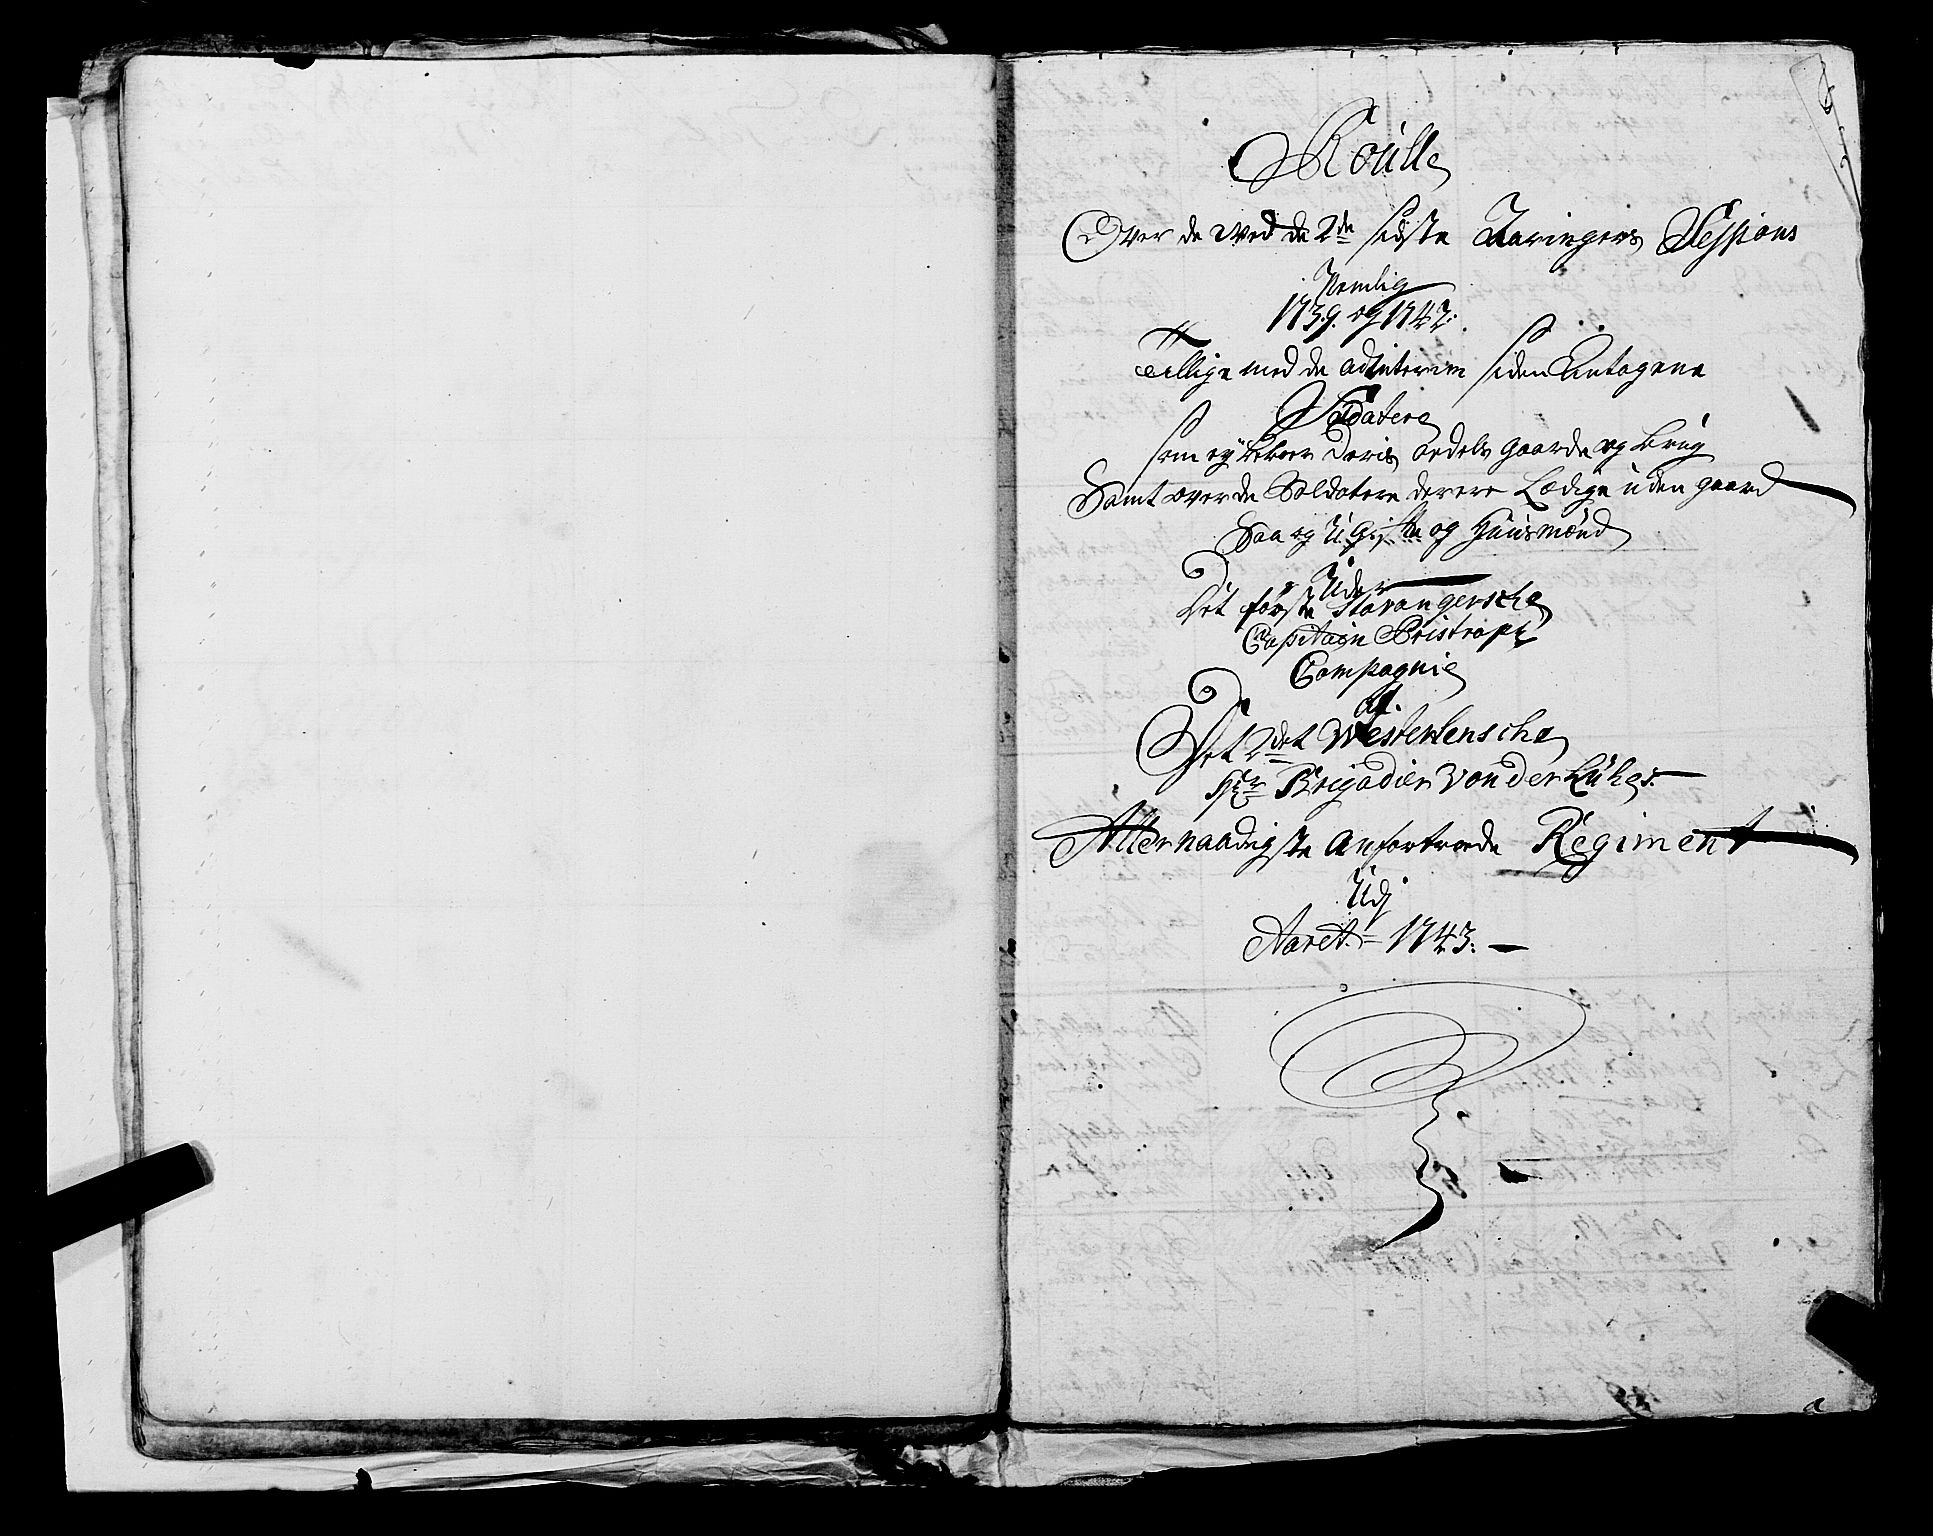 Roülle
Over de wed de 2de sidste Aaringers Sessions
Nemlig
1739. og 1742:
Tillige med de adinterim siden Antagene
Soldatere
som ey beboer Deris ædels gaarde og brüg
Samt over de Soldatere der ere Lædige üden gaard
Saa og Ugifte og Hüüsmænd
Üder
Det første Stavangersche
Capitain Pristrops
Compagnie
af.
Det 2det Westerlensche
Hr Brigadier Von der Lühes:
Allernaadigste anfortroede Regiment
Udj
Aaret = 1743: —